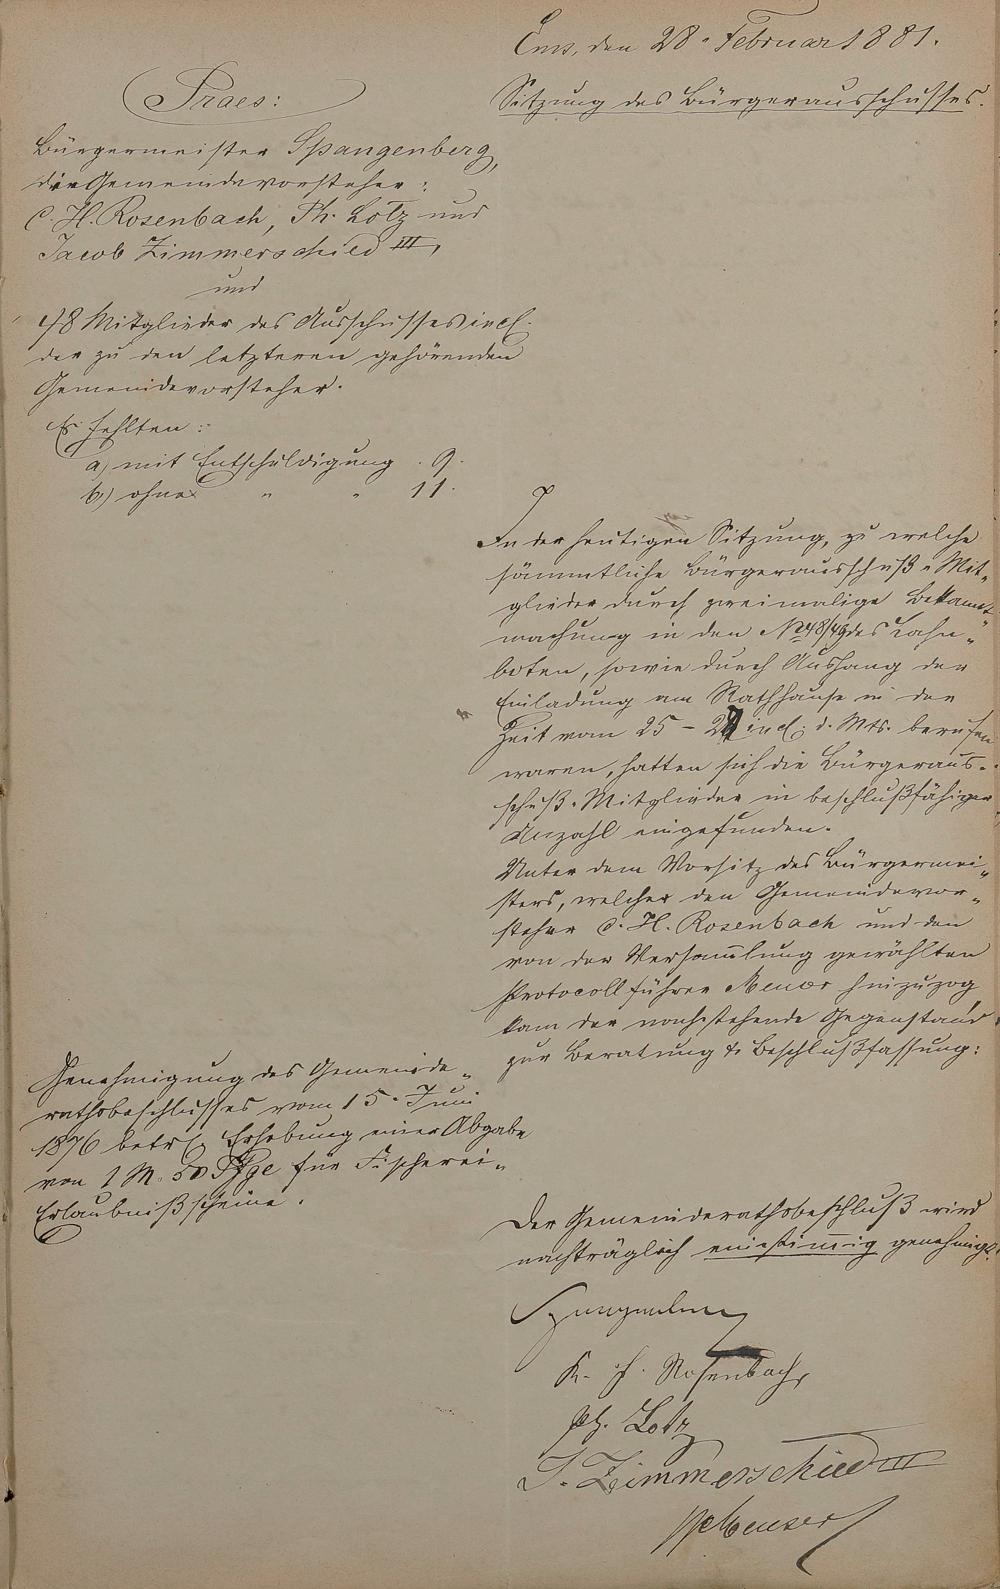 Ems, den 28. Februar 1881.
Sitzung des Bürgerausschusses.
Praes:
Bürgermeister Spangenberg,
die Gemeindevorsteher:
C. H. Rosenbach, Ph. Lotz und
Jacob Zimmerschied III,
und
48 Mitglieder des Ausschusses incl.
der zu den letzteren gehörenden
Gemeindevorsteher.
Es fehlten:
a) mit Entschuldigung . 9.
b) ohne " " 11.
In der heutigen Sitzung, zu welche
sämmtliche Bürgerausschuß-Mit-
glieder durch zweimalige Bekannt-
machung in den No 48/49 des Lahn-
boten, sowie durch Aushang der
Einladung am Rathhause in der
Zeit vom 25 - 27 incl. d. Mts. berufen
waren, hatten sich die Bürgeraus-
schuß-Mitglieder in beschlußfähiger
Anzahl eingefunden.
Unter dem Vorsitz des Bürgermei-
sters, welcher den Gemeindevor-
steher C. H. Rosenbach und den
von der Versammlung gewählten
Protocollführer hinzuzog,
kam der nachstehende Gegenstand
zur Beratung & Beschlußfassung:
Genehmigung des Gemeinde-
rathsbeschlusses vom 15. Juni
1876 betr. Erhebung einer Abgabe
von 1 M. 50 Pfge für Fischerei-
Erlaubnißscheine.
Der Gemeinderathsbeschluß wird
nachträglich einstimmig genehmigt.
Spangenberg
K. H. Rosenbach,
Ph. Lotz
J. Zimmerschied III